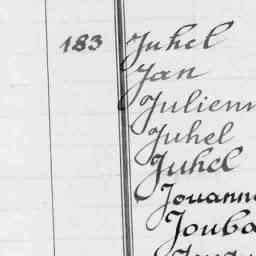 183 Juhel
Jan
Julienn
Juhel
Juhel
Jouanne
Jouba